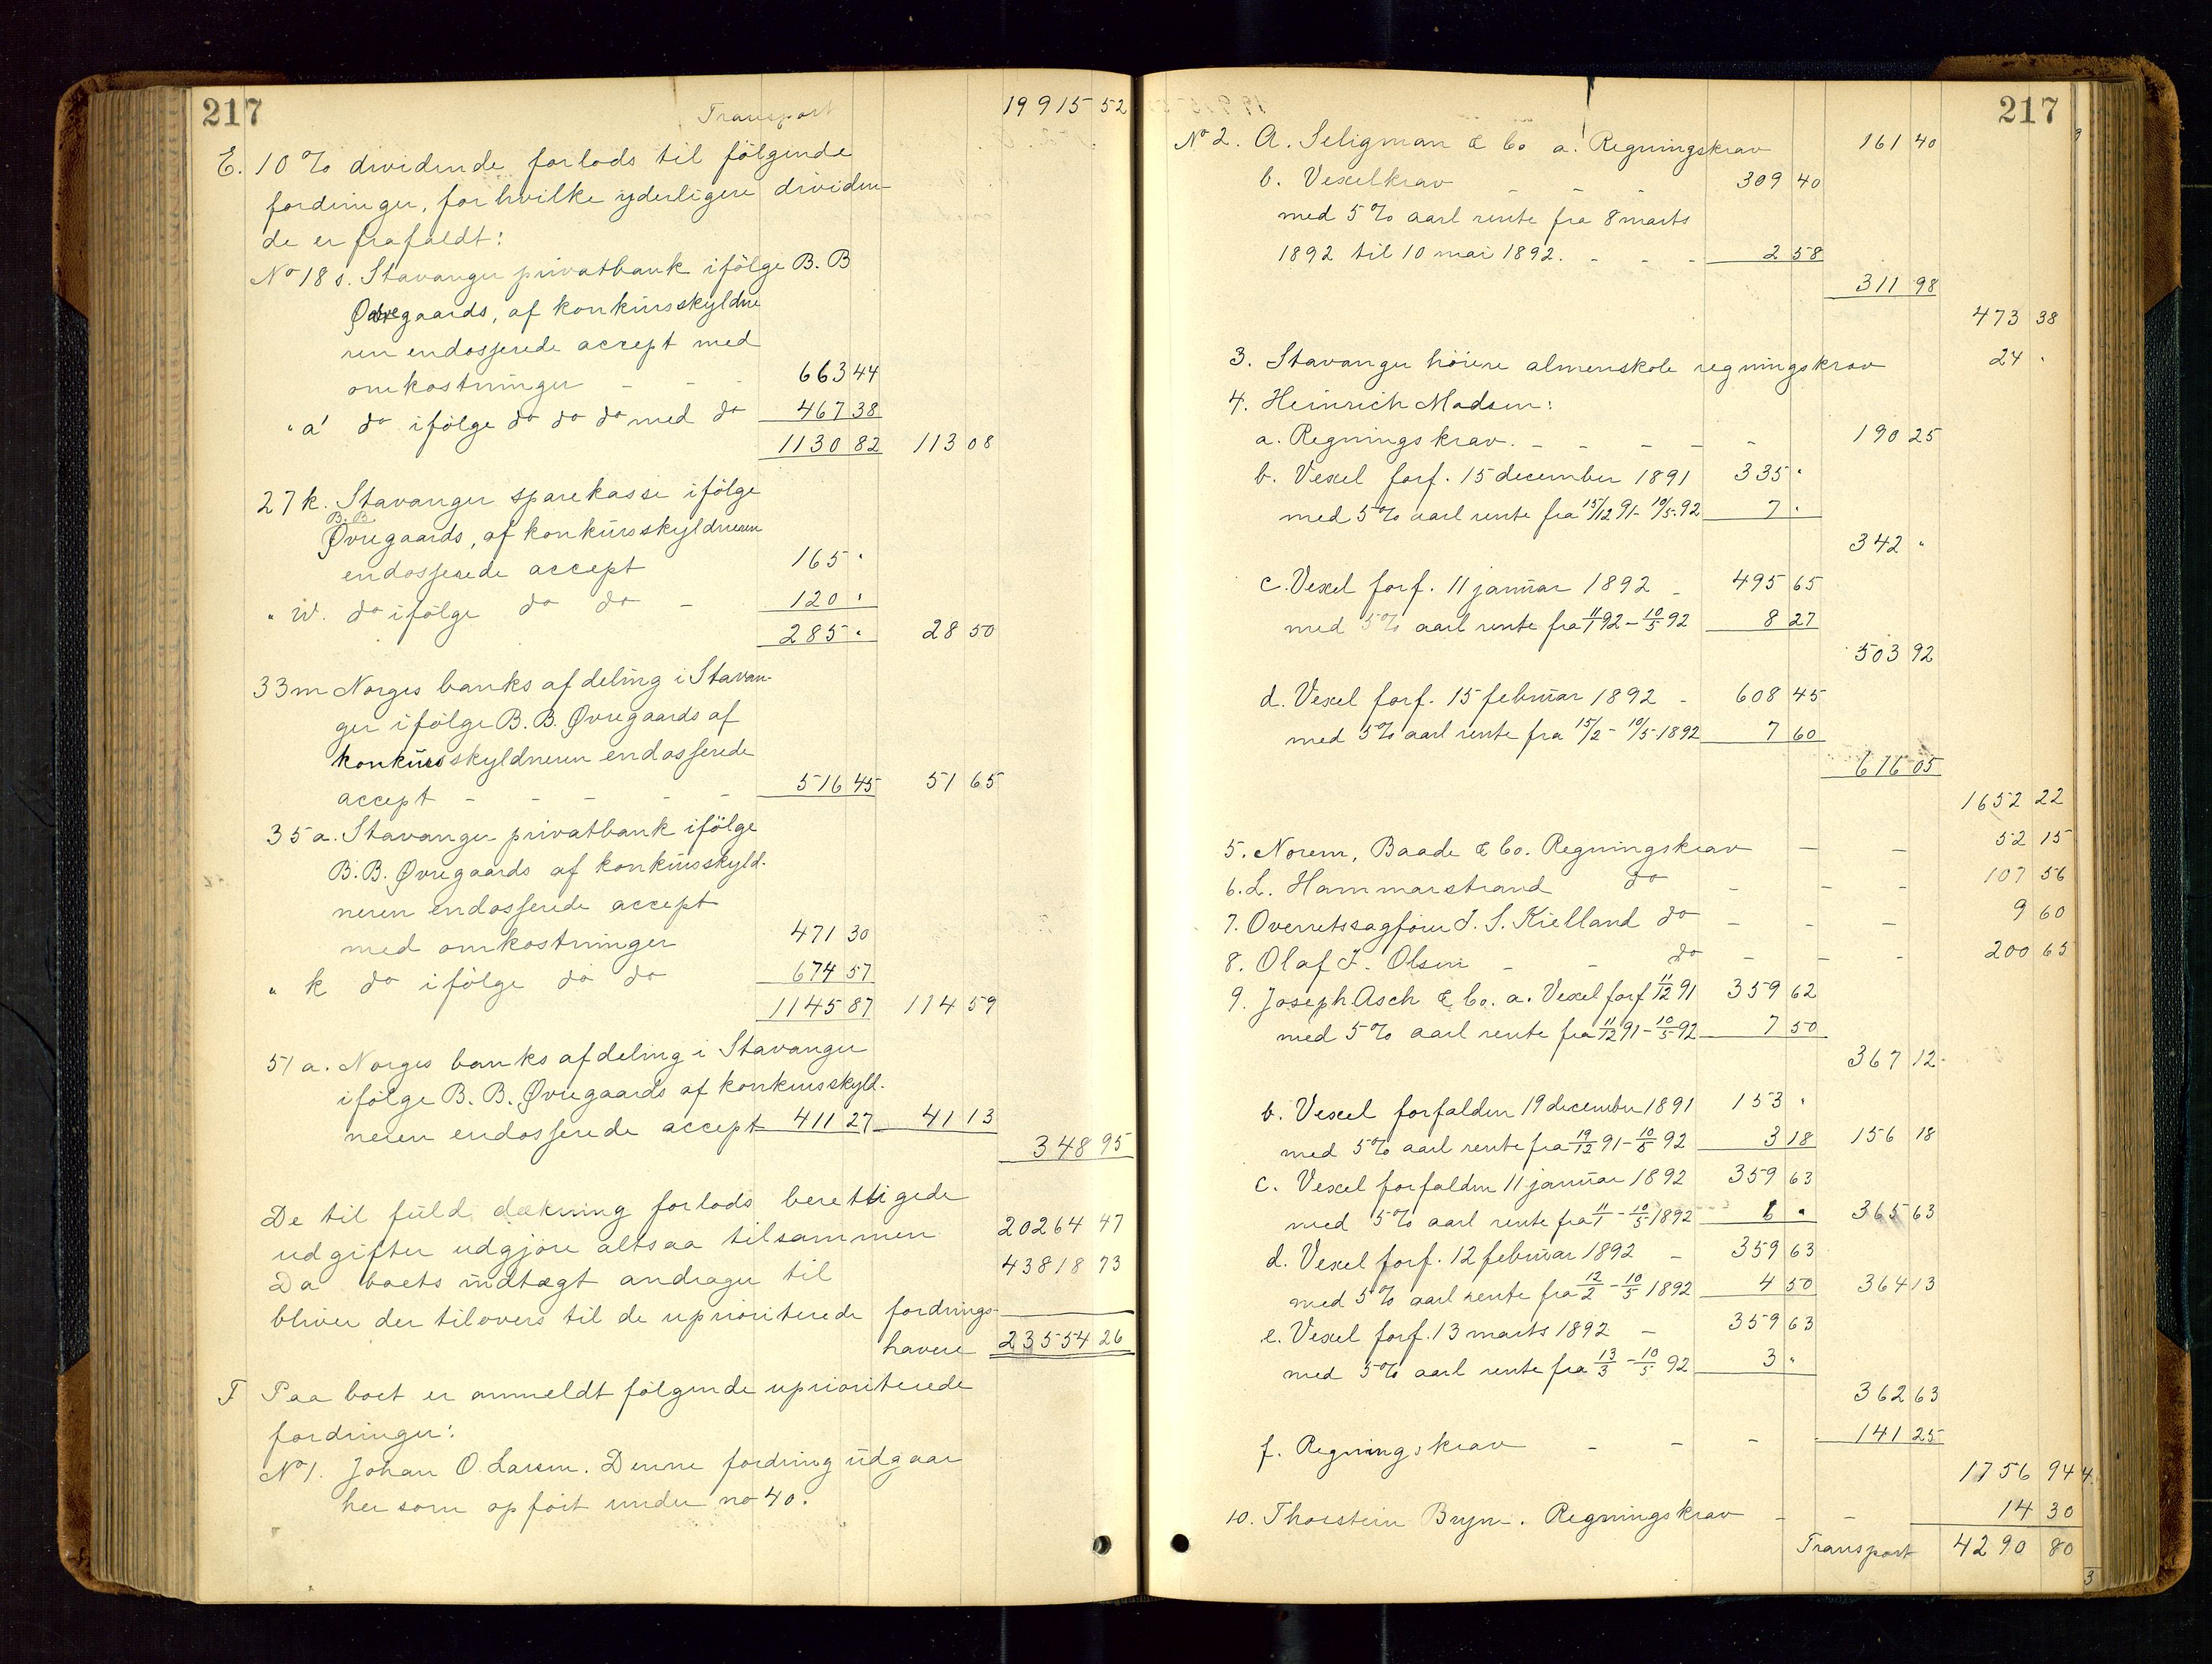 217
Transport 19915 52
E. 10 % dividende forlods til følgende
fordringer, for hvilke yderligere dividen-
de er frafaldt:
No 18 s. Stavanger privatbank ifølge B. B
Øvregaards, af konkursskyldne
ren endosserede accept med
omkostninger - - - 663 44
" a' do ifølge do do do med do 467 38
1130 82 113 08
27 k. Stavanger sparekasse ifølge
B. B.
Øvregaards, af konkursskyldneren
endosserede accept 165 "
" w. do ifølge do do - 120 "
285 " 28 50
33 m Norges banks afdeling i Stavan-
ger ifølge B. B. Øvregaards af
konkursskyldneren endosserede
accept - - - - - 516 45 51 65
35 a. Stavanger privatbank ifølge
B. B. Øvregaards af konkursskyld-
neren endosserede accept
med omkostninger 471 30
" k do ifølge do do 674 57
1145 87 114 59
51 a. Norges banks afdeling i Stavanger
ifølge B. B. Øvregaards af konkursskyld-
neren endosserede accept 411 27 41 13
348 95
De til fuld dækning forlods berettigede
udgifter udgjøre altsaa tilsammen 20264 47
Da boets indtægt andrager til 43818 73
bliver der tilovers til de uprioriterede fordrings-
havere 23554 26
F Paa boet er anmeldt følgende uprioriterede
fordringer:
No 1. Johan O. Larsen. Denne fordring udgaar
her som opført under no 40.
217
No 2. A. Seligman & Co a. Regningskrav 161 40
b. Vexelkrav - - - 309 40
med 5 % aarl rente fra 8 marts
1892 til 10 mai 1892. - - - 2 58
311 98
473 38
3. Stavanger høiere almenskole regningskrav 24 "
4. Heinrich Madsen:
a. Regningskrav. - - - - - 190 25
b. Vexel forf. 15 december 1891 335 "
med 5 % aarl rente fra 15/12 91 - 10/5 92 7 "
342 "
c. Vexel forf. 11 januar 1892 - 495 65
med 5 % aarl rente fra 11/1 92 - 10/5 92 8 27
503 92
d. Vexel forf. 15 februar 1892 - 608 45
med 5 % aarl rente fra 15/2 - 10/5 1892 7 60
616 05
1652 22
5. Norem, Baade & Co. Regningskrav - - 52 15
6. L. Hammarstrand do - - - 107 56
7. Overretssagfører J. S. Kielland do - - - 9 60
8. Olaf J. Olsen - - do - - - 200 65
9. Joseph Asch & Co. a. Vexel forf 11/12 91 359 62
med 5 % aarl rente fra 11/12 91 - 10/5 92 7 50
367 12
b. Vexel forfalden 19 december 1891 153 "
med 5 % aarl rente fra 19/12 91 - 10/5 92 3 18 156 18
c. Vexel forfalden 11 januar 1892 359 63
med 5 % aarl rente fra 11/1 - 10/5 1892 6 " 365 63
d. Vexel forf. 12 februar 1892 - 359 63
med 5 % aarl rente fra 12/2 - 10/5 1892 4 50 364 13
e. Vexel forf. 13 marts 1892 - 359 63
med 5 % aarl rente fra 13/3 - 10/5 92 3 "
362 63
f. Regningskrav - - - 141 25
1756 94
10. Thorstein Bryn. Regningskrav - - 14 30
Transport 4290 80